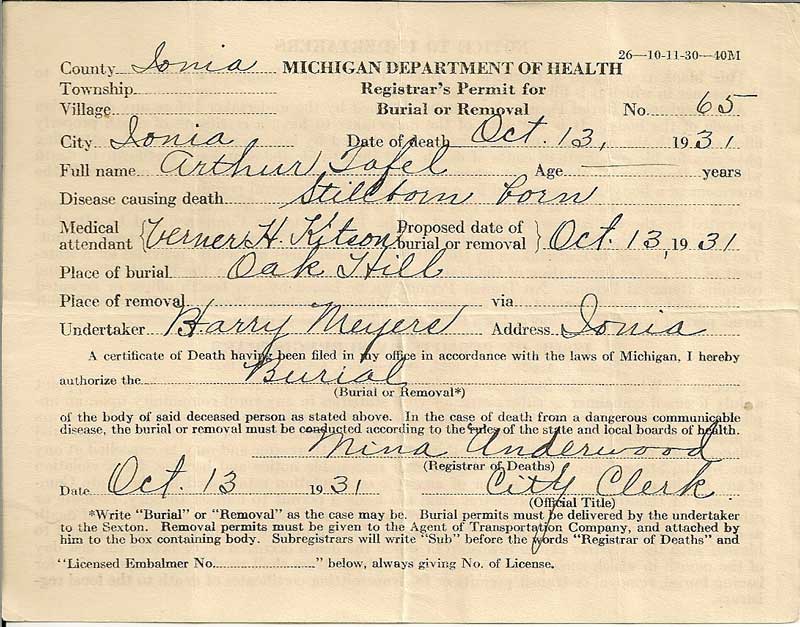 26—10-11-30—40M
County Ionia MICHIGAN DEPARTMENT OF HEALTH
Township Registrar's Permit for
Village Burial or Removal No. 65
City Ionia Date of death Oct. 13, 1931
Full name Arthur Tafel Age — years
Disease causing death Stillborn born
Medical attendant } Verner H. Kitson Proposed date of burial or removal } Oct. 13, 1931
Place of burial Oak Hill
Place of removal via
Undertaker Harry Meyers Address Ionia
A certificate of Death having been filed in my office in accordance with the laws of Michigan, I hereby
authorize the Burial
(Burial or Removal*)
of the body of said deceased person as stated above. In the case of death from a dangerous communicable
disease, the burial or removal must be conducted according to the rules of the state and local boards of health.
Mina Underwood
(Registrar of Deaths)
Date Oct. 13 1931 City Clerk
(Official Title)
*Write "Burial" or "Removal" as the case may be. Burial permits must be delivered by the undertaker
to the Sexton. Removal permits must be given to the Agent of Transportation Company, and attached by
him to the box containing body. Subregistrars will write "Sub" before the words "Registrar of Deaths" and
"Licensed Embalmer No. " below, always giving No. of License.